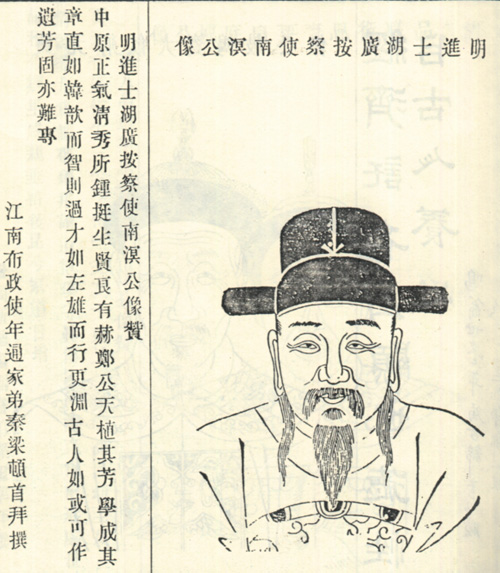 明進士湖廣按察使南溟公像
明進士湖廣按察使南溟公像贊
中原正氣清秀所鍾挺生賢良有赫鄭公天植其芳學成其
章直如韓歆而智則過才如左雄而行更淵古人如或可作
遺芳固亦難專
江南布政使年通家弟秦梁頓首拜撰